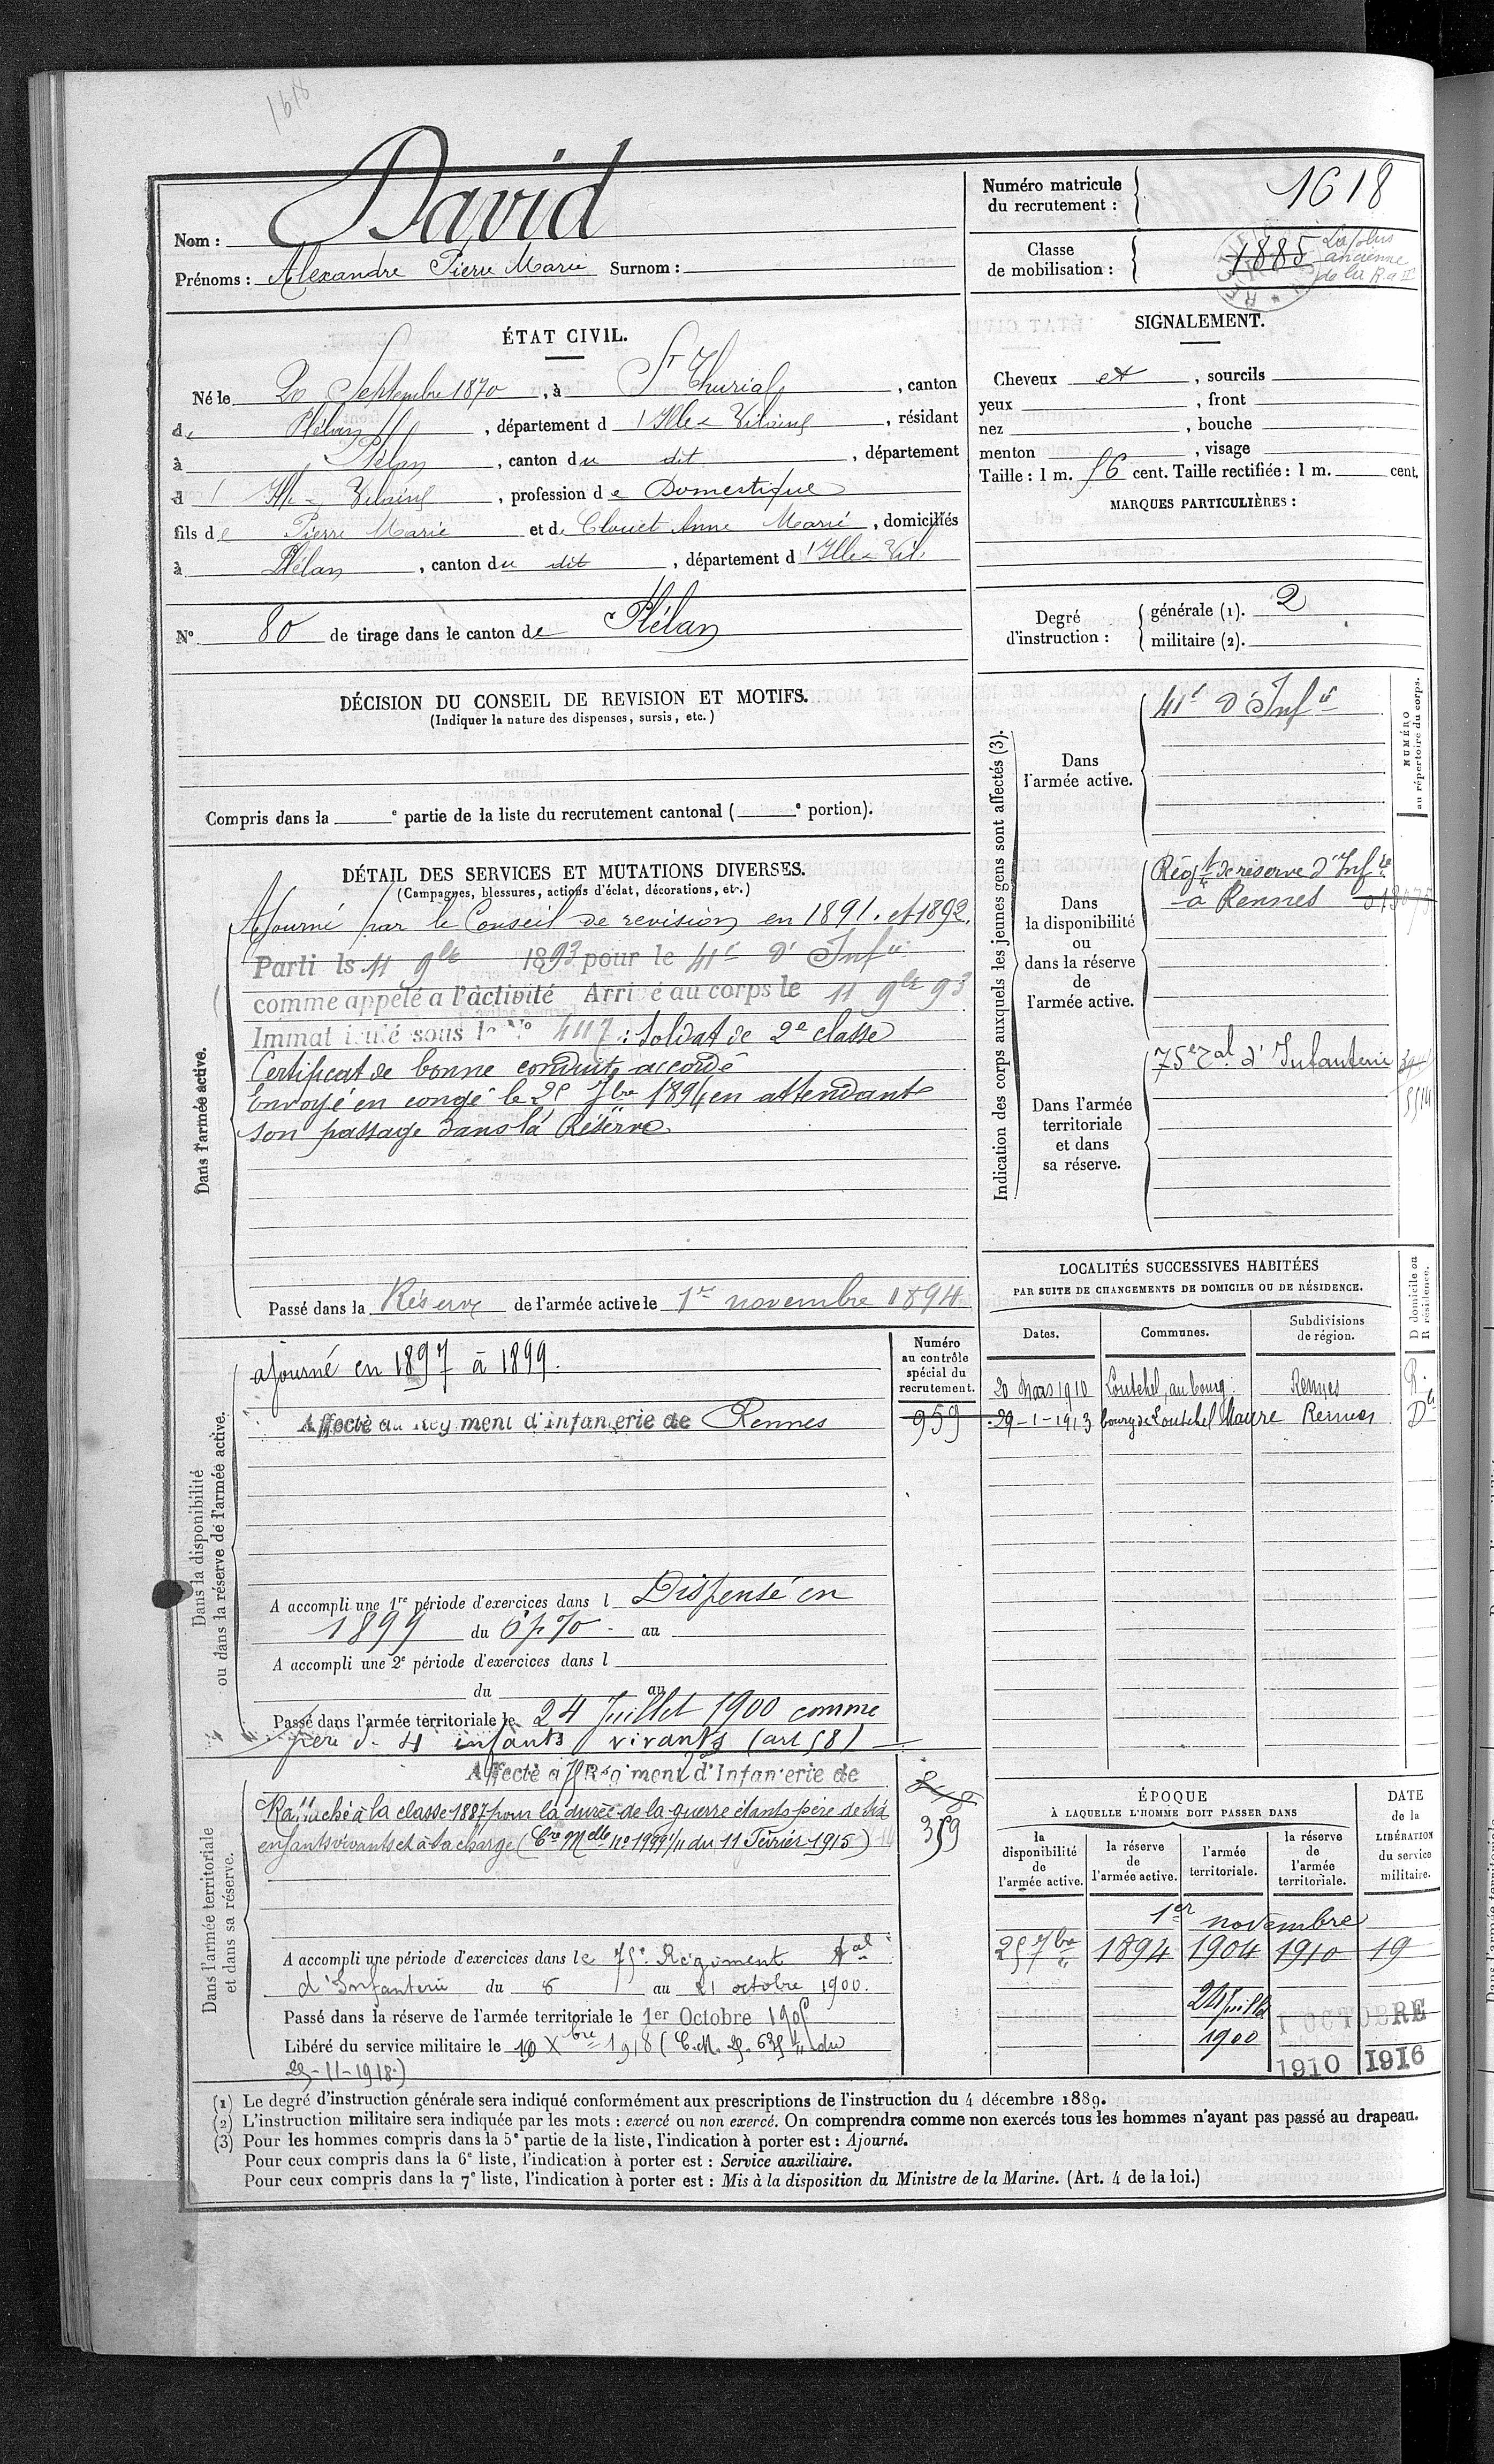 1618
Nom : David
Prénoms : Alexandre Pierre Marie Surnom :
Numéro matricule du recrutement : 1618
Classe de mobilisation : 1885 La plus ancienne de la R.a.T.
ÉTAT CIVIL.
Né le 20 Septembre 1870, à St Thurial, canton
de Plélan, département d l'Ille & Vilaine, résidant
à Plélan, canton du dit, département
d l'Ille & Vilaine, profession de Domestique
fils de Pierre Marie et de Clouet Anne Marie, domiciliés
à Plélan, canton du dit, département d l'Ille & Vil.
N° 80 de tirage dans le canton de Plélan
SIGNALEMENT.
Cheveux et, sourcils
yeux, front
nez, bouche
menton, visage
Taille : 1 m. 56 cent. Taille rectifiée : 1 m. cent.
MARQUES PARTICULIÈRES :
Degré d'instruction : générale (1). 2
militaire (2).
DÉCISION DU CONSEIL DE REVISION ET MOTIFS.
(Indiquer la nature des dispenses, sursis, etc.)
Compris dans la e partie de la liste du recrutement cantonal ( e portion).
DÉTAIL DES SERVICES ET MUTATIONS DIVERSES.
(Campagnes, blessures, actions d'éclat, décorations, etc.)
Dans l'armée active.
Ajourné par le Conseil de revision en 1891. et 1892.
Parti le 11 9bre 1893 pour le 41e d'Infie
comme appelé à l'activité Arrivé au corps le 11 9bre 93
Immatriculé sous le No 4117 : Soldat de 2e classe
Certificat de bonne conduite accordé
Envoyé en congé le 25 7bre 1894 en attendant
son passage dans la Réserve.
Passé dans la Réserve de l'armée active le 1er novembre 1894
Indication des corps auxquels les jeunes gens sont affectés (3).
NUMÉRO au répertoire du corps.
Dans l'armée active.
41e d'Infie
Dans la disponibilité ou dans la réserve de l'armée active.
Régt de réserve d'Infie
à Rennes
Dans l'armée territoriale et dans sa réserve.
75e Tal d'Infanterie
LOCALITÉS SUCCESSIVES HABITÉES
PAR SUITE DE CHANGEMENTS DE DOMICILE OU DE RÉSIDENCE.
D domicile ou R résidence.
Dates. Communes. Subdivisions de région.
20 Mars 1910 Loutehel, au bourg. Rennes R.
29-1-1913 bourg de Loutehel Maure Rennes Dle
Dans la disponibilité ou dans la réserve de l'armée active.
Numéro au contrôle spécial du recrutement.
ajourné en 1897 à 1899.
Affecté au Régiment d'infanterie de Rennes 959
A accompli une 1re période d'exercices dans l Dispensé en
1899 du 6p% au
A accompli une 2e période d'exercices dans l
du au
Passé dans l'armée territoriale le 24 Juillet 1900 comme
père de 4 enfants vivants (art 58)
Dans l'armée territoriale et dans sa réserve.
Affecté au Régiment d'Infanterie de
359
Rattaché à la classe 1887 pour la durée de la guerre étant père de six
enfants vivants et à sa charge (Cre Melle no 1999 1/11 du 11 Février 1915)
A accompli une période d'exercices dans le 75e Régiment Tal
d'Infanterie du 8 au 21 octobre 1900.
Passé dans la réserve de l'armée territoriale le 1er Octobre
Libéré du service militaire le 10 Xbre 1918 (C.M. du
25-11-1918.)
ÉPOQUE
À LAQUELLE L'HOMME DOIT PASSER DANS
la disponibilité de l'armée active. la réserve de l'armée active. l'armée territoriale. la réserve de l'armée territoriale.
DATE de la LIBÉRATION du service militaire.
1er novembre
25 7bre 1894 1904 1910 19
24 Juillet 1 OCTOBRE
1900 1910 1916
(1) Le degré d'instruction générale sera indiqué conformément aux prescriptions de l'instruction du 4 décembre 1889.
(2) L'instruction militaire sera indiquée par les mots : exercé ou non exercé. On comprendra comme non exercés tous les hommes n'ayant pas passé au drapeau.
(3) Pour les hommes compris dans la 5e partie de la liste, l'indication à porter est : Ajourné.
Pour ceux compris dans la 6e liste, l'indication à porter est : Service auxiliaire.
Pour ceux compris dans la 7e liste, l'indication à porter est : Mis à la disposition du Ministre de la Marine. (Art. 4 de la loi.)